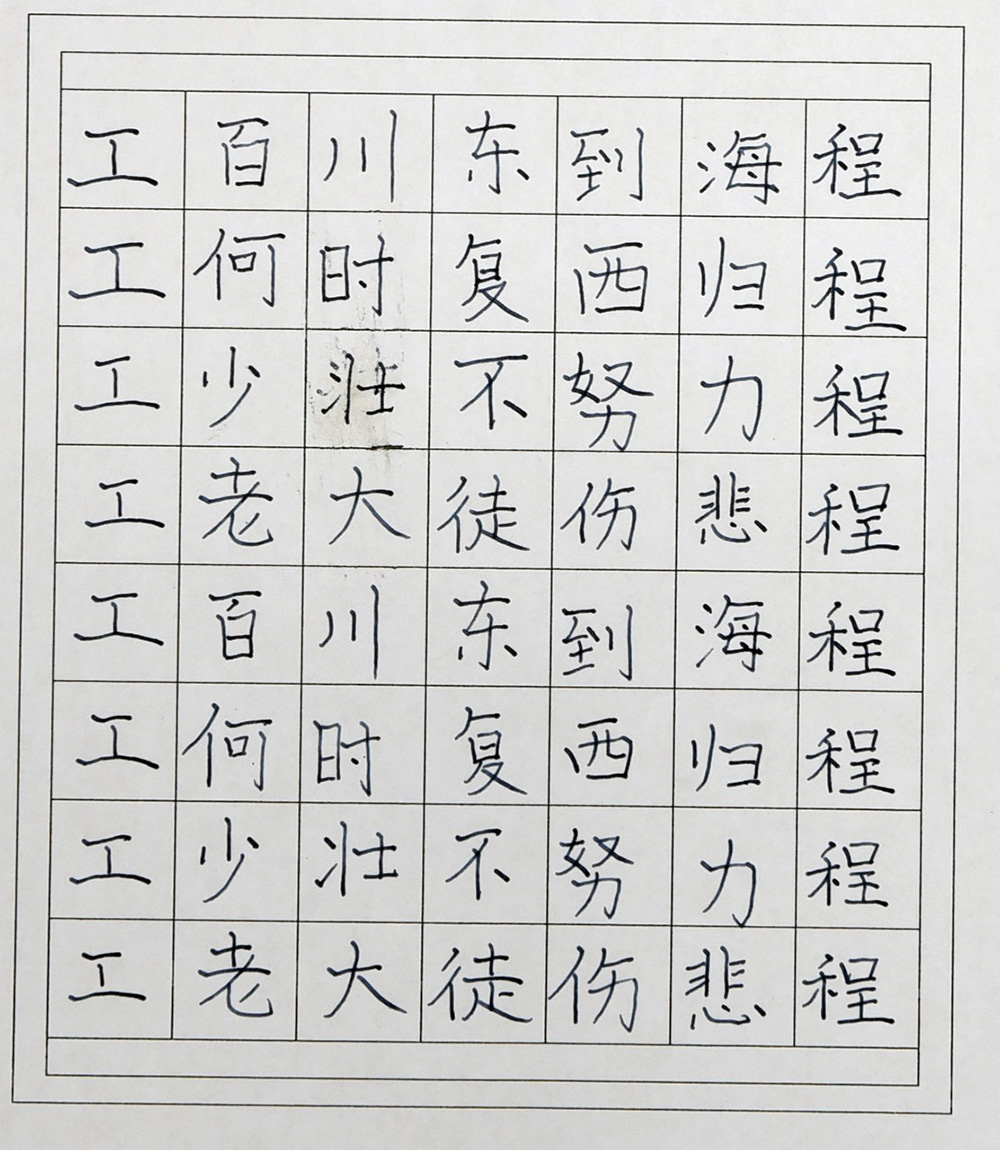 工百川东到海程
工何时复西归程
工少壮不努力程
工老大徒伤悲程
工百川东到海程
工何时复西归程
工少壮不努力程
工老大徒伤悲程